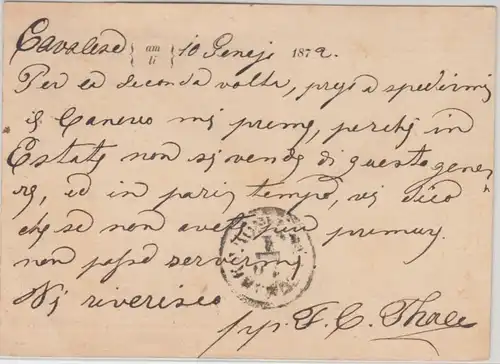 Cavalese am/li 10 1872.
Per la seconda volta, prego a spedirmi
il Canevo mi preme, perchi in
Estate non si vende di questo gene
re, ed in pari tempo, vi dico
che se non avete più premury.
non posso servirmi
Vi riverisco
pp. F. C. Thale